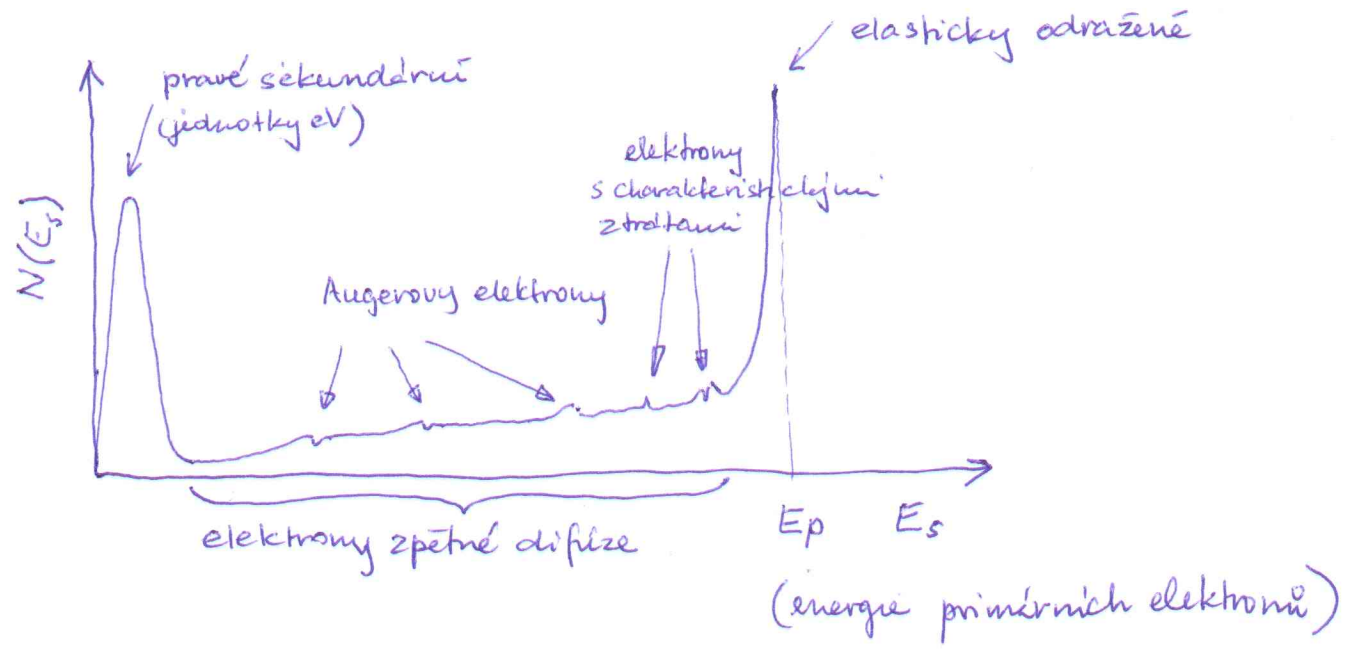 elasticky odražené
pravé sekundární
(jednotky eV)
elektrony
s charakteristickými
ztrátami
N(Es)
Augerovy elektrony
elektrony zpětné difúze
Ep
Es
(energie primárních elektronů)